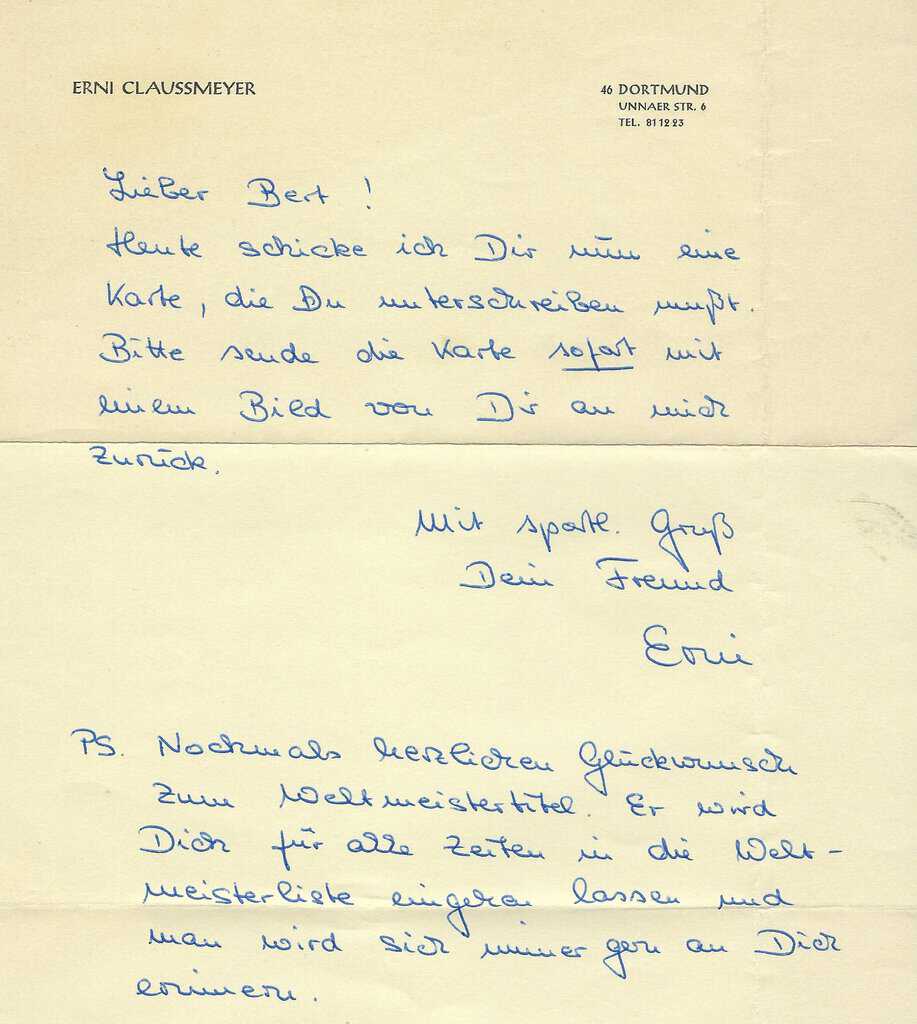 ERNI CLAUSSMEYER
46 DORTMUND
UNNAER STR. 6
TEL. 81 12 23
Lieber Bert !
Heute schicke ich Dir nun eine
Karte, die Du unterschreiben mußt.
Bitte sende die Karte sofort mit
einem Bild von Dir an mich
zurück.
Mit sportl. Gruß
Dein Freund
Erni
PS. Nochmals herzlichen Glückwunsch
zum Weltmeistertitel. Er wird
Dich für alle Zeiten in die Welt-
meisterliste eingehen lassen und
man wird sich immer gern an Dich
erinnern.